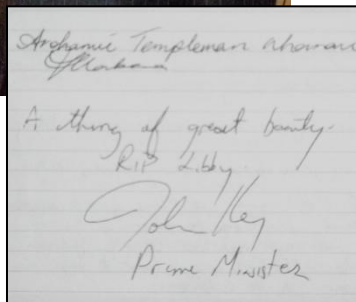 Templeman
A thing of great beauty.
RIP Libby
John Key
Prime Minister